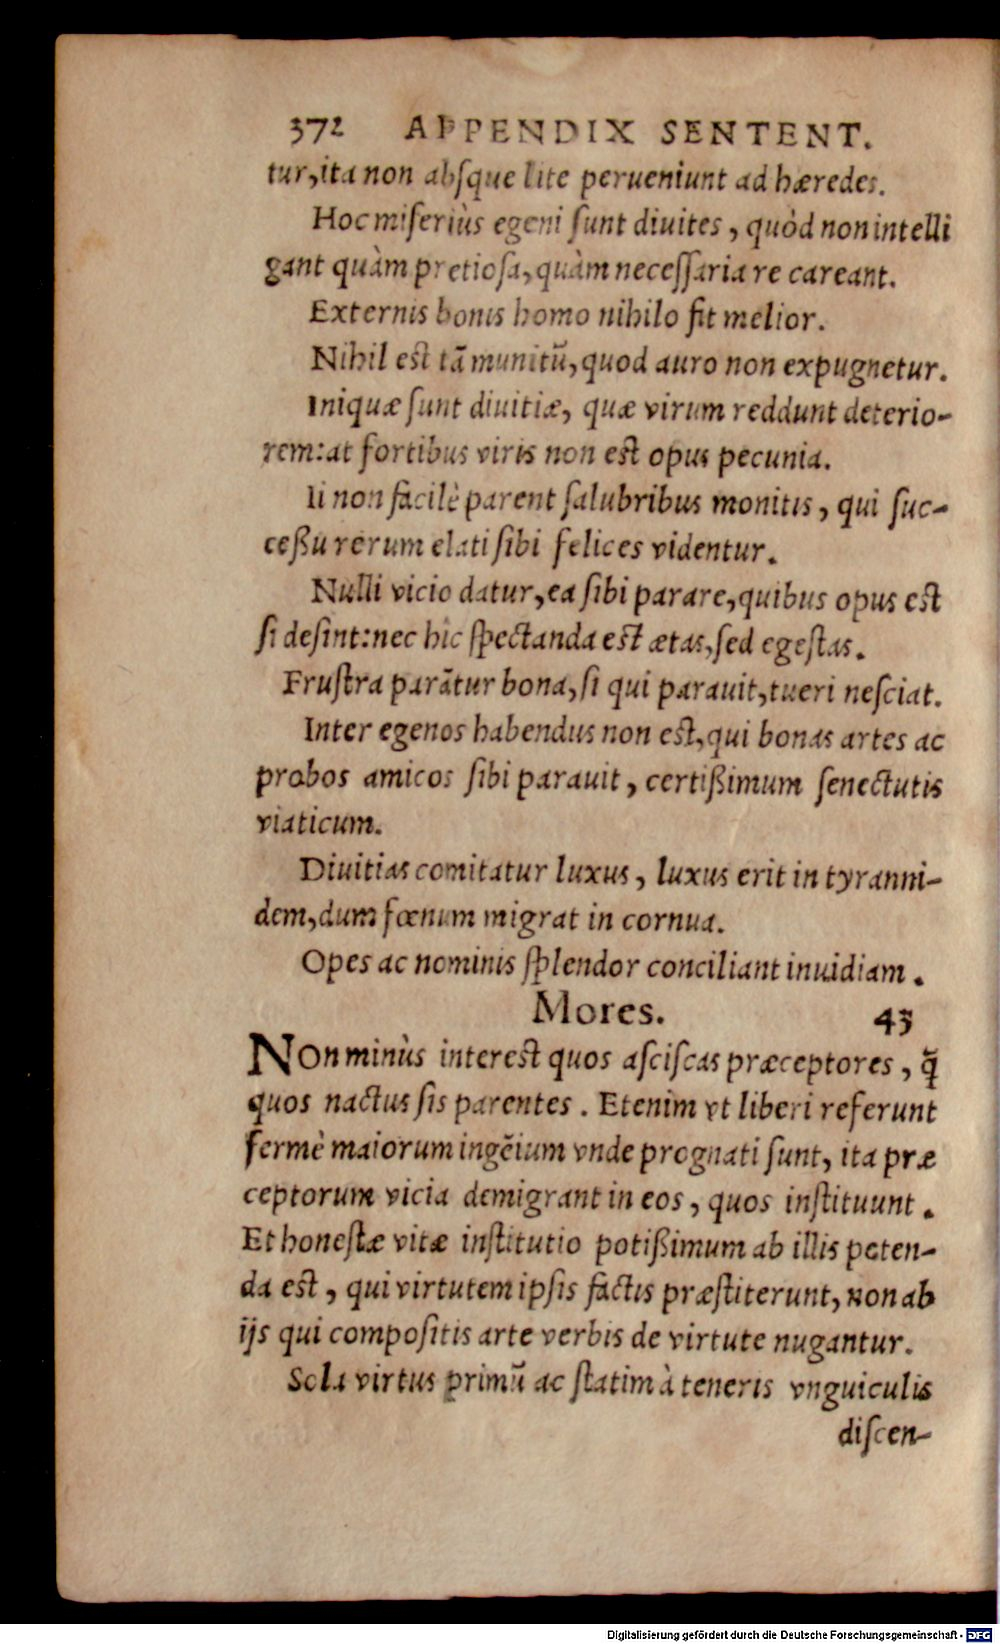 372 APPENDIX SENTENT.
tur, ita non abſque lite perueniunt ad hæredes.
Hoc miſeriùs egeni ſunt diuites, quòd non intelli
gant quàm pretioſa, quàm neceſſaria re careant.
Externis bonis homo nihilo fit melior.
Nihil est tã munitũ, quod auro non expugnetur.
Iniquæ ſunt diuitiæ, quæ virum reddunt deterio-
rem: at fortibus viris non est opus pecunia.
Ii non facilè parent ſalubribus monitis, qui ſuc-
ceßu rerum elati ſibi felices videntur.
Nulli vicio datur, ea ſibi parare, quibus opus est
ſi deſint: nec hîc ſpectanda est ætas, ſed egeſtas.
Fruſtra parãtur bona, ſi qui parauit, tueri neſciat.
Inter egenos habendus non est, qui bonas artes ac
probos amicos ſibi parauit, certißimum ſenectutis
viaticum.
Diuitias comitatur luxus, luxus erit in tyranni-
dem, dum fœnum migrat in cornua.
Opes ac nominis ſplendor conciliant inuidiam.
Mores. 43
Non minùs interest quos aſciſcas præceptores, q̃
quos nactus ſis parentes. Etenim vt liberi referunt
fermè maiorum ingẽium vnde prognati ſunt, ita præ
ceptorum vicia demigrant in eos, quos inſtituunt.
Et honeſtæ vitæ inſtitutio potißimum ab illis peten-
da est, qui virtutem ipſis factis præſtiterunt, non ab
ijs qui compoſitis arte verbis de virtute nugantur.
Sola virtus primũ ac ſtatim à teneris vnguiculis
diſcen-
Digitalisierung gefördert durch die Deutsche Forschungsgemeinschaft - DFG